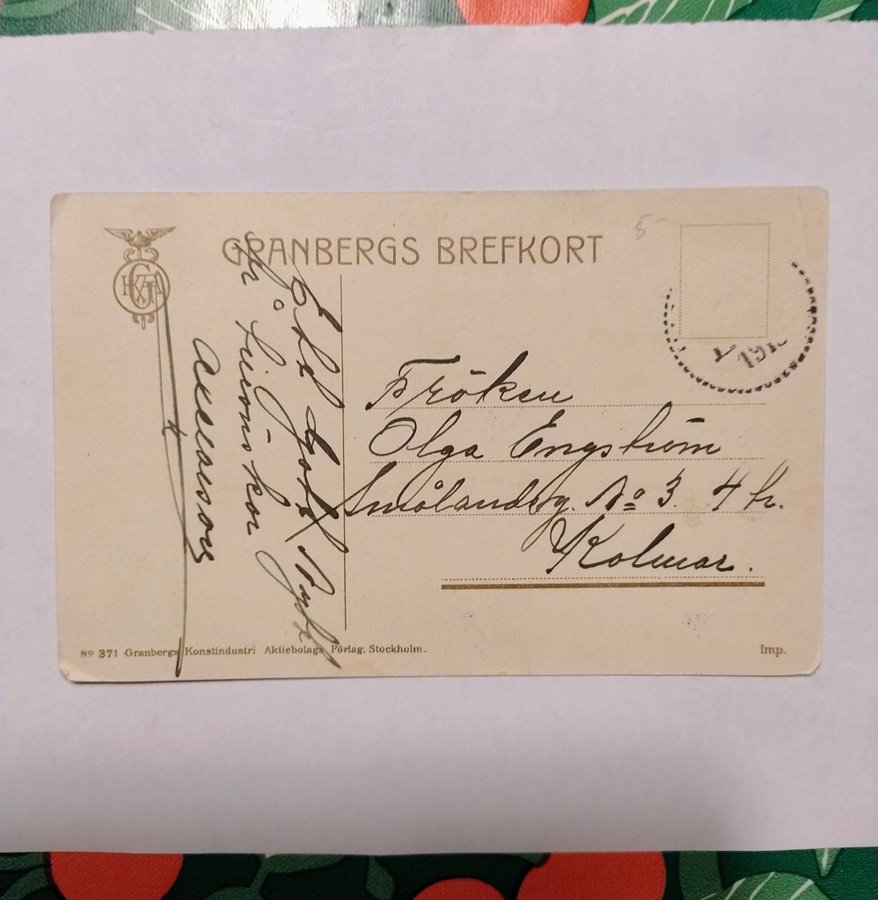 GRANBERGS BREFKORT
5-
Ett Gott Nytt
år
Axelsson
Fröken
Olga Engström
Smålandsg. No 3. 4 tr.
Kolmar.
No 371 Granbergs Konstindustri Aktiebolags Förlag, Stockholm.
Imp.